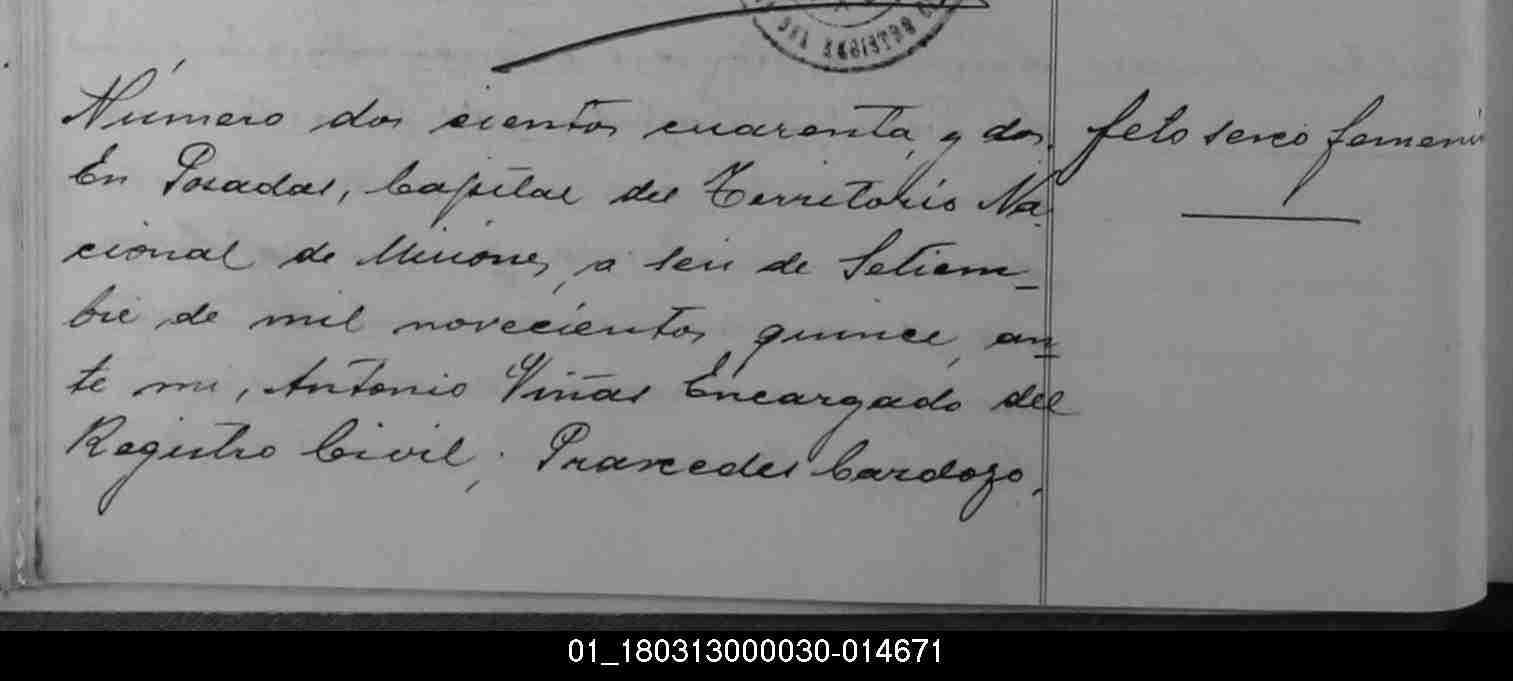 DEL REGISTRO
Número dos cientos cuarenta y dos.
En Posadas, Capital del Territorio Na
cional de Misiones, a seis de Setiem_
bre de mil novecientos quince, an_
te mi, Antonio Viñas Encargado del
Registro Civil; Praxedes Cardozo,
feto sexo femeni
01_180313000030-014671